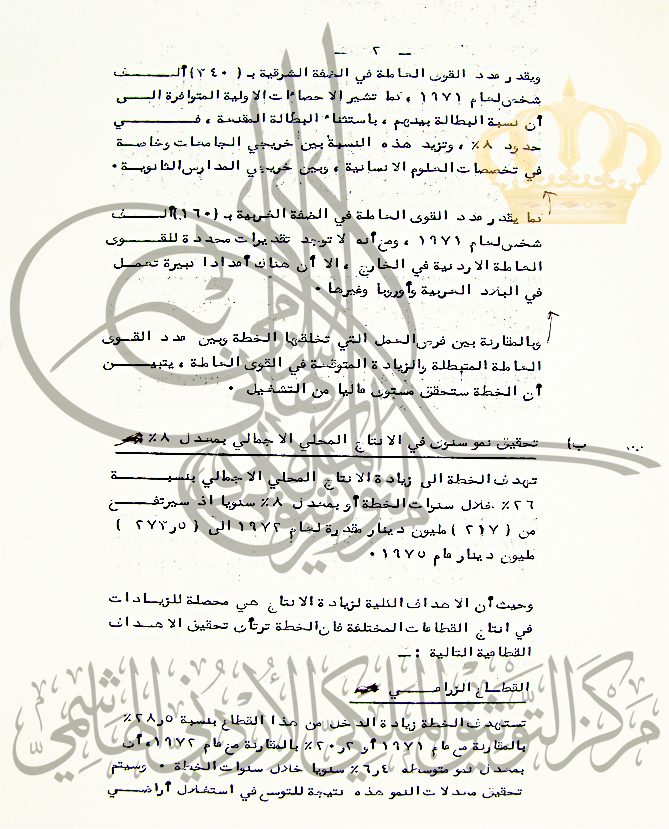 — ٢ —
ويقدر عدد القوى العاملة في الضفة الشرقية بـ (٣٤٠) ألف
شخص لعام ١٩٧١ ، كما تشير الاحصاءات الاولية المتوافرة الى
أن نسبة البطالة بينهم ، باستثناء البطالة المقنعة ، في
حدود ٨٪ ، وتزيد هذه النسبة بين خريجي الجامعات وخاصة
في تخصصات العلوم الانسانية ، وبين خريجي المدارس الثانوية ٠
كما يقدر عدد القوى العاملة في الضفة الغربية بـ (١٦٠) ألف
شخص لعام ١٩٧١ ، ومع أنه لا توجد تقديرات محددة للقوى
العاملة الاردنية في الخارج ، الا أن هناك أعدادا كبيرة تعمل
في البلاد العربية وأوروبا وغيرها ٠
وبالمقارنة بين فرص العمل التي تخلقها الخطة وبين عدد القوى
العاملة المتبطلة والزيادة المتوقعة في القوى العاملة ، يتبين
أن الخطة ستحقق مستوى عاليا من التشغيل ٠
ب) تحقيق نمو سنوي في الانتاج المحلي الاجمالي بمعدل ٨٪
تهدف الخطة الى زيادة الانتاج المحلي الاجمالي بنسبة
٢٦٪ خلال سنوات الخطة أو بمعدل ٨٪ سنويا اذ سيرتفع
من (٢١٧) مليون دينار مقدرة لعام ١٩٧٢ الى (٢٧٣ر٥)
مليون دينار عام ١٩٧٥ ٠
وحيث أن الاهداف الكلية لزيادة الانتاج هي محصلة للزيادات
في انتاج القطاعات المختلفة فان الخطة ترتأي تحقيق الاهداف
القطاعية التالية : ـ
القطاع الزراعي
تستهدف الخطة زيادة الدخل من هذا القطاع بنسبة ٢٨ر٥٪
بالمقارنة مع عام ١٩٧١ أو ٢٠ر٢٪ بالمقارنة مع عام ١٩٧٢، أي
بمعدل نمو متوسطه ٦ر٤٪ سنويا خلال سنوات الخطة ٠ وسيتم
تحقيق معدلات النمو هذه نتيجة للتوسع في استغلال أراضي
مركز التوثيق الملكي الأردني الهاشمي